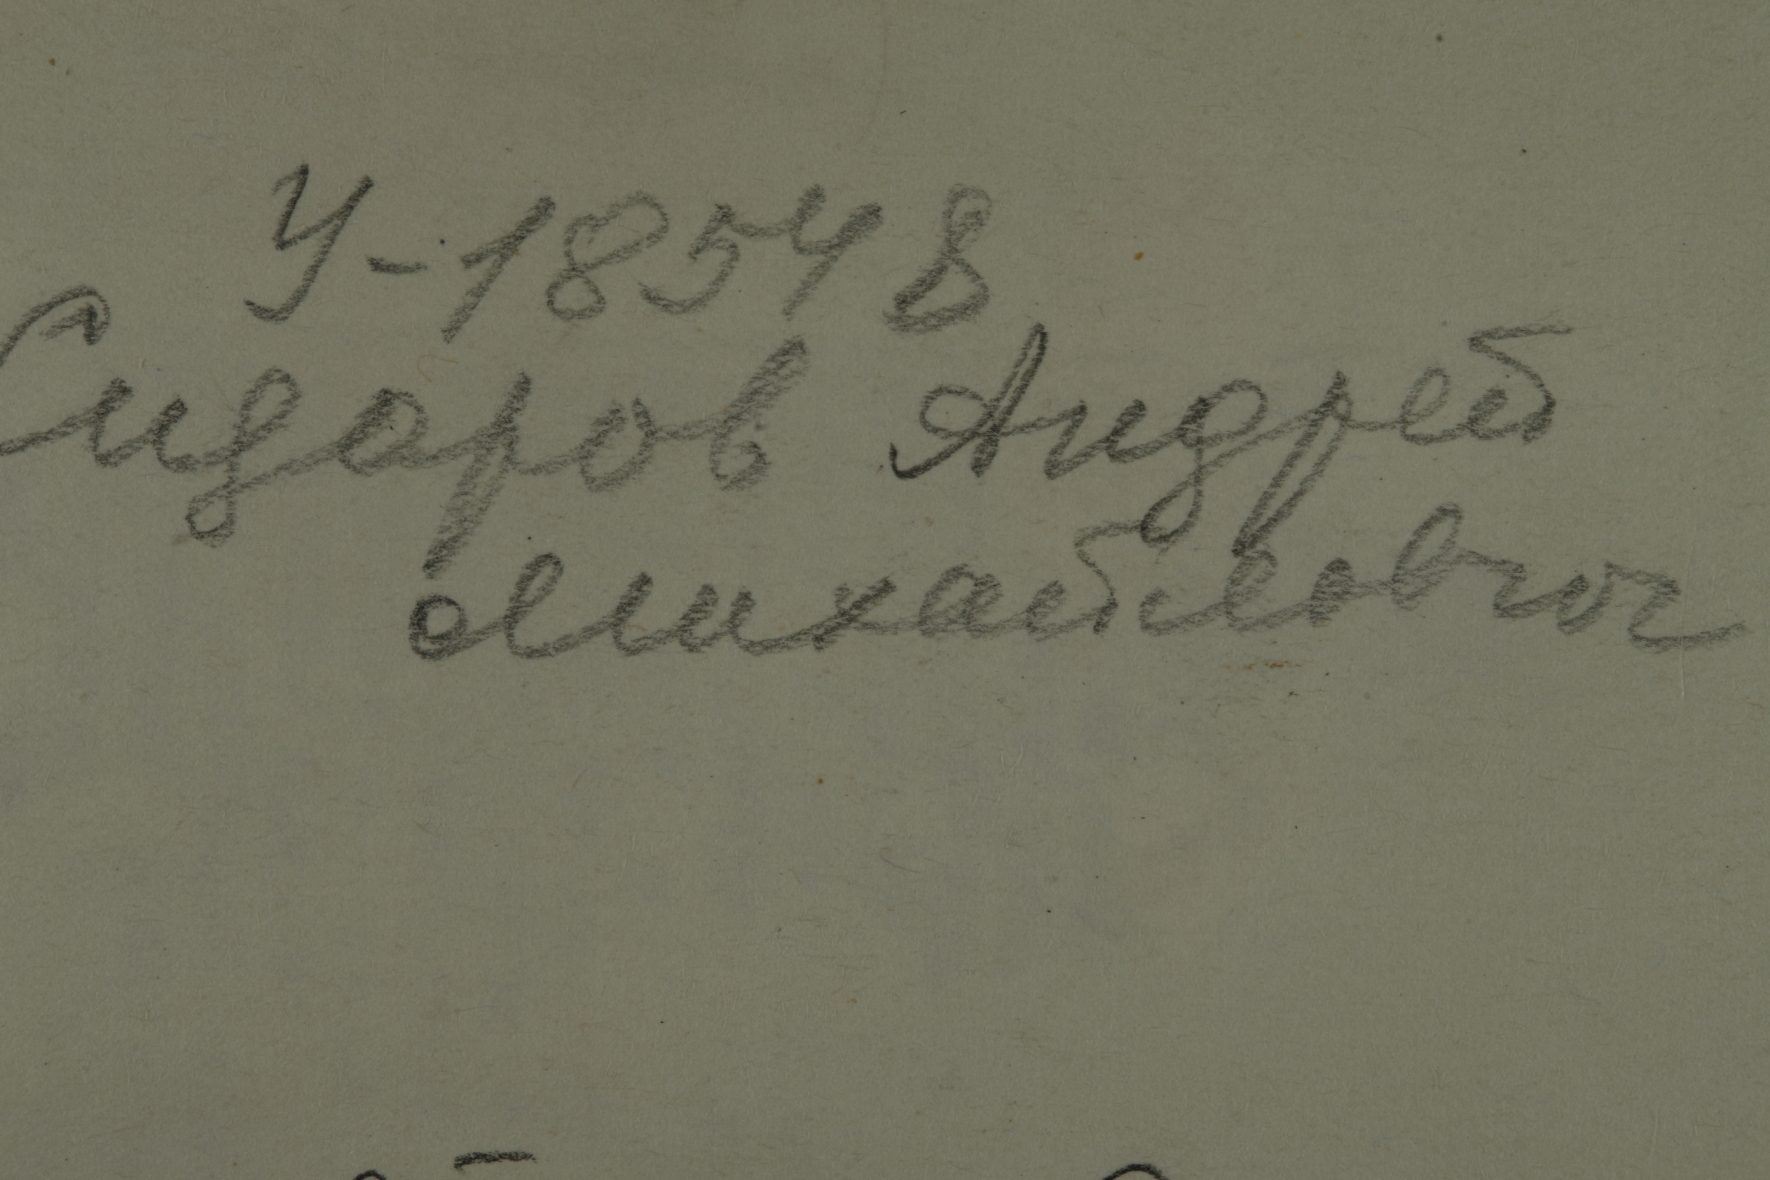 У-18548
Сидоров Андрей
Михайлович